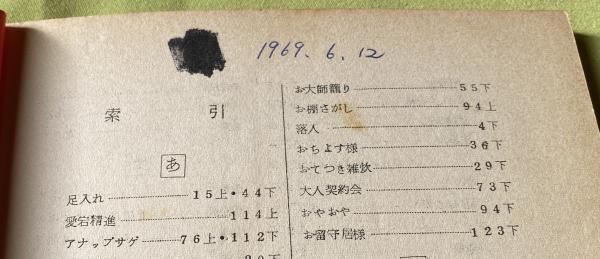 1969. 6. 12
索引
あ
足入れ 15上・44下
愛宕精進 114上
アナップサゲ 76上・112下
お大師籠り 55下
お棚さがし 94上
落人 4下
おちよす様 36下
おてつき雑炊 29下
大人契約会 73下
おやおや 94下
お留守居様 123下